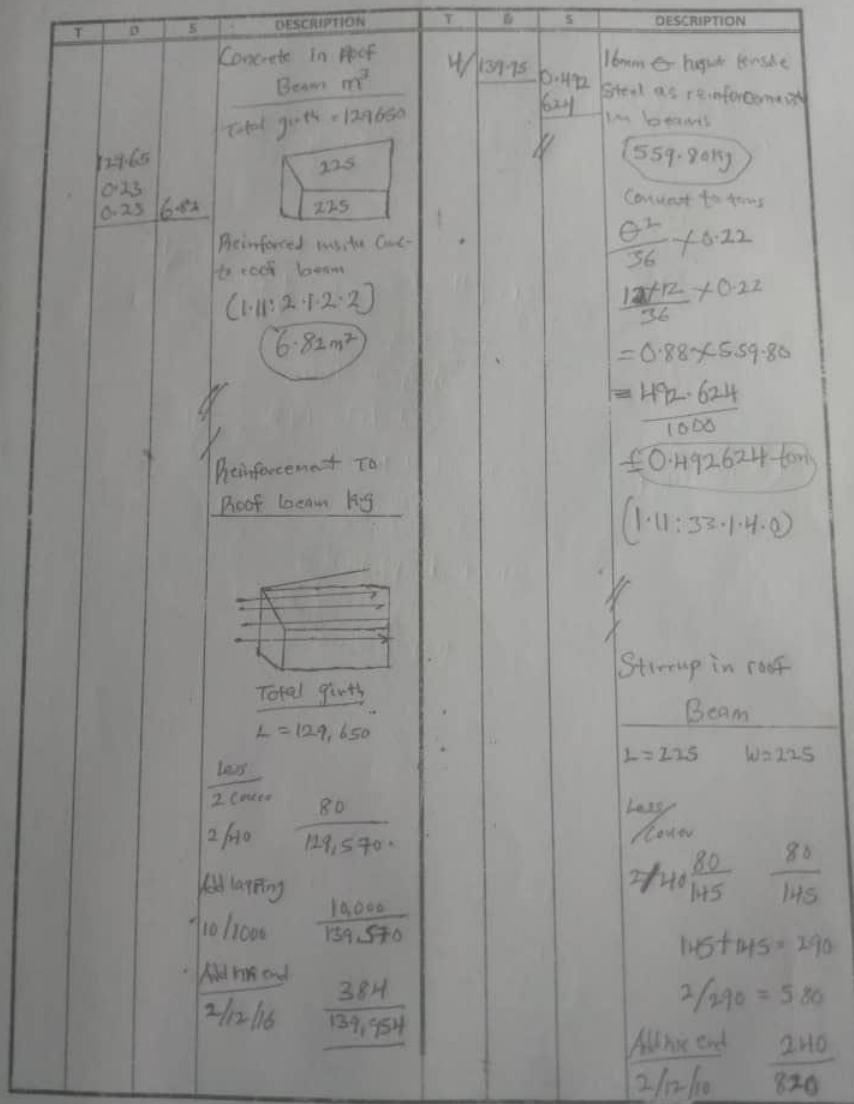 T D S DESCRIPTION
Concrete in Roof
Beam m³
Total girth = 129650
129.65
0.23
0.23 6.82
225
225
Reinforced insitu Conc-
te roof beam
(1.11:2.1.2.2)
6.82m²
Reinforcement To
Roof beam kg
Total girth
L = 129,650
Less
2 Cover 80
2/40 129,570.
Add lapping
10/1000 10,000
139,570
Add hk end 384
2/12/16 139,954
T D S DESCRIPTION
4/ 139.95 0.492
624
16mm θ high tensile
Steel as reinforcement
in beams
559.80kg
Convert to tons
θ²/36 × 0.22
12×12/36 × 0.22
= 0.88 × 559.80
= 492.624
1000
£0.492624 tons
(1.11:33.1.4.0)
Stirrup in roof
Beam
L = 225 W = 225
Less
Cover
2/40 80 80
145 145
145 + 145 = 290
2/290 = 580
Add hk end 240
2/12/10 820